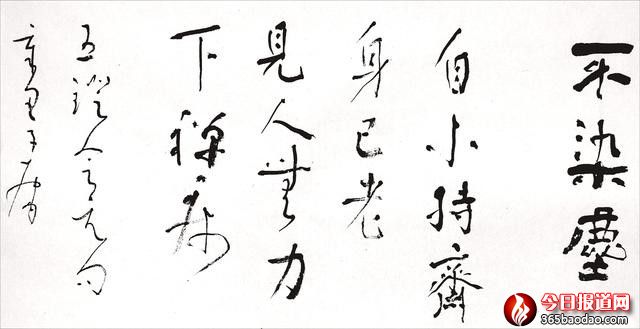 不染塵
自小持齋
身已老
見人無力
下禪床
五燈会元句
今日报道网
365baodao.com